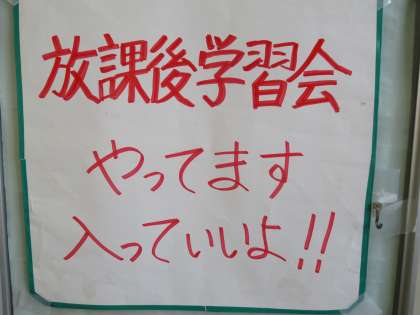 放課後学習会
やってます
入っていいよ!!